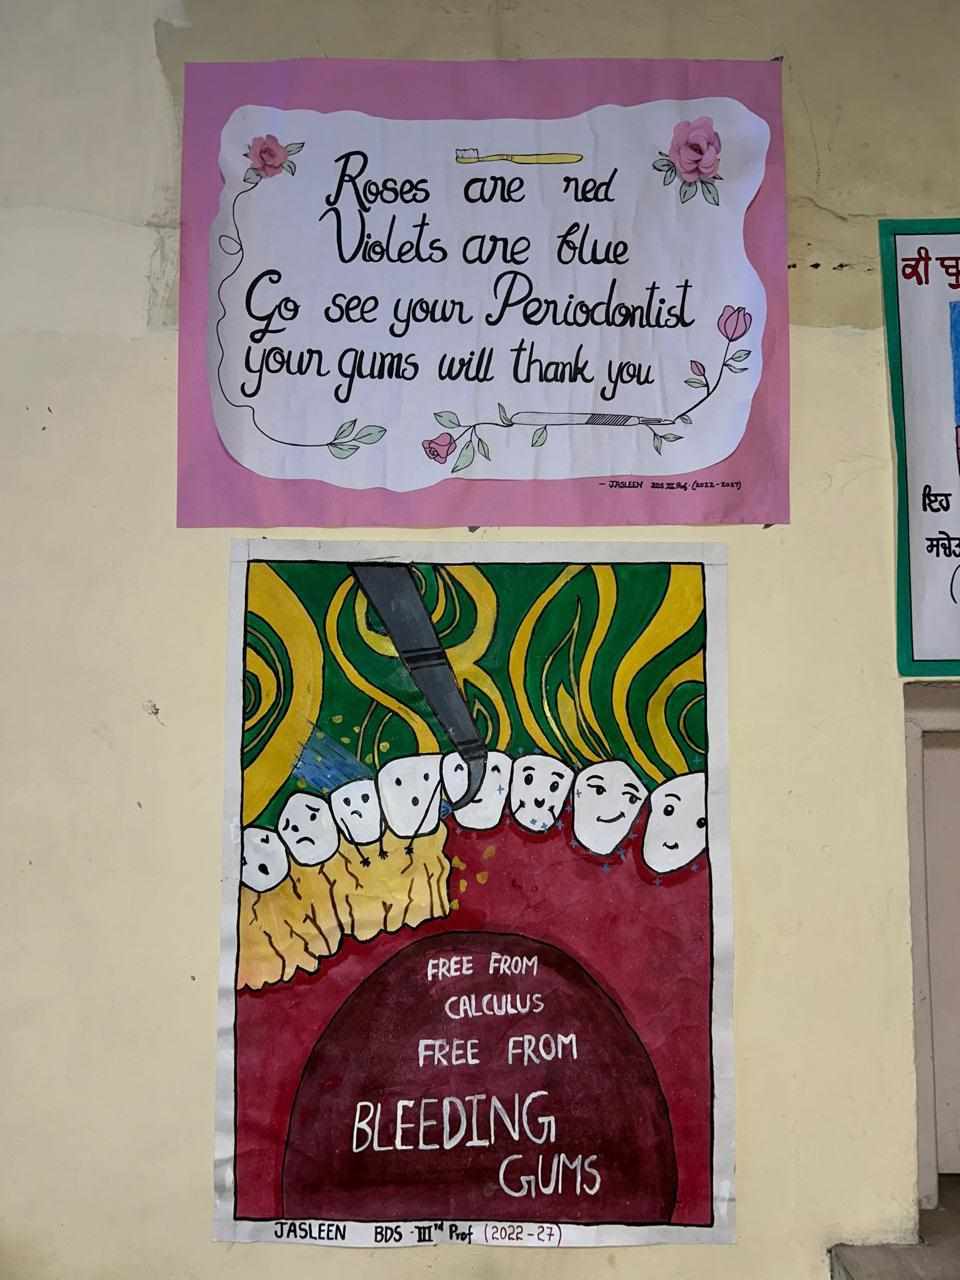 Roses are red
Violets are blue
Go see your Periodontist
your gums will thank you
- JASLEEN BDS III Prof. (2022-2027)
FREE FROM
CALCULUS
FREE FROM
BLEEDING
GUMS
JASLEEN BDS - IIIrd Prof (2022-27)
ਕੀ
ਇਹ